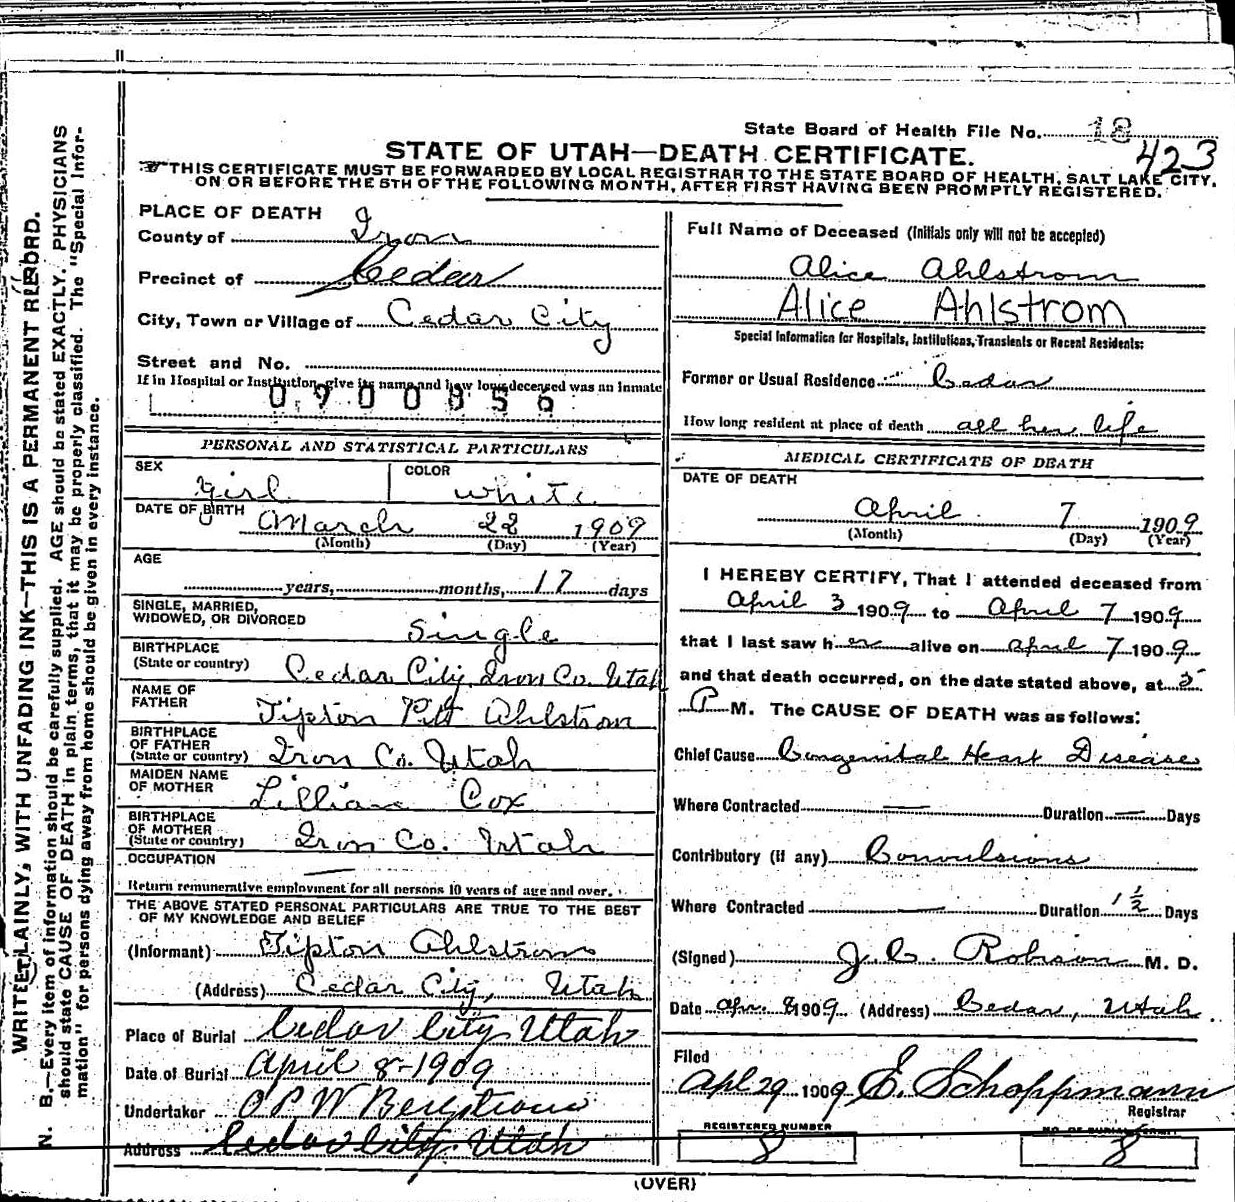 State Board of Health File No. 18
423
STATE OF UTAH—DEATH CERTIFICATE.
THIS CERTIFICATE MUST BE FORWARDED BY LOCAL REGISTRAR TO THE STATE BOARD OF HEALTH, SALT LAKE CITY,
ON OR BEFORE THE 5TH OF THE FOLLOWING MONTH, AFTER FIRST HAVING BEEN PROMPTLY REGISTERED.
WRITE PLAINLY, WITH UNFADING INK—THIS IS A PERMANENT RECORD.
N. B.—Every item of information should be carefully supplied. AGE should be stated EXACTLY. PHYSICIANS
should state CAUSE OF DEATH in plain terms, that it may be properly classified. The "Special Infor-
mation" for persons dying away from home should be given in every instance.
PLACE OF DEATH
County of Iron
Precinct of Cedar
City, Town or Village of Cedar City
Street and No.
If in Hospital or Institution, give its name and how long deceased was an inmate
0900856
PERSONAL AND STATISTICAL PARTICULARS
SEX girl COLOR white
DATE OF BIRTH March 22 1909
(Month) (Day) (Year)
AGE
years, months, 17 days
SINGLE, MARRIED,
WIDOWED, OR DIVORCED Single
BIRTHPLACE
(State or country) Cedar City Iron Co. Utah
NAME OF
FATHER Tipton Pitt Ahlstrom
BIRTHPLACE
OF FATHER
(State or country) Iron Co. Utah
MAIDEN NAME
OF MOTHER Lillian Cox
BIRTHPLACE
OF MOTHER
(State or country) Iron Co. Utah
OCCUPATION
Return remunerative employment for all persons 10 years of age and over.
THE ABOVE STATED PERSONAL PARTICULARS ARE TRUE TO THE BEST
OF MY KNOWLEDGE AND BELIEF
(Informant) Tipton Ahlstrom
(Address) Cedar City, Utah
Place of Burial Cedar City Utah
Date of Burial April 8-1909
Undertaker O P W Bergstrom
Address Cedar City Utah
Full Name of Deceased (Initials only will not be accepted)
Alice Ahlstrom
Alice Ahlstrom
Special Information for Hospitals, Institutions, Transients or Recent Residents:
Former or Usual Residence Cedar
How long resident at place of death all her life
MEDICAL CERTIFICATE OF DEATH
DATE OF DEATH
April 7 1909
(Month) (Day) (Year)
I HEREBY CERTIFY, That I attended deceased from
April 3 1909 to April 7 1909
that I last saw her alive on April 7 1909
and that death occurred, on the date stated above, at 5
P M. The CAUSE OF DEATH was as follows:
Chief Cause Congenital Heart Disease
Where Contracted — Duration — Days
Contributory (if any) Convulsions
Where Contracted — Duration 1½ Days
(Signed) J. C. Robison M. D.
Date Apr. 8 1909 (Address) Cedar, Utah.
Filed
Apl 29 1909 E. Schoppmann
Registrar
REGISTERED NUMBER
8
NO. OF BURIAL PERMIT
8
(OVER)